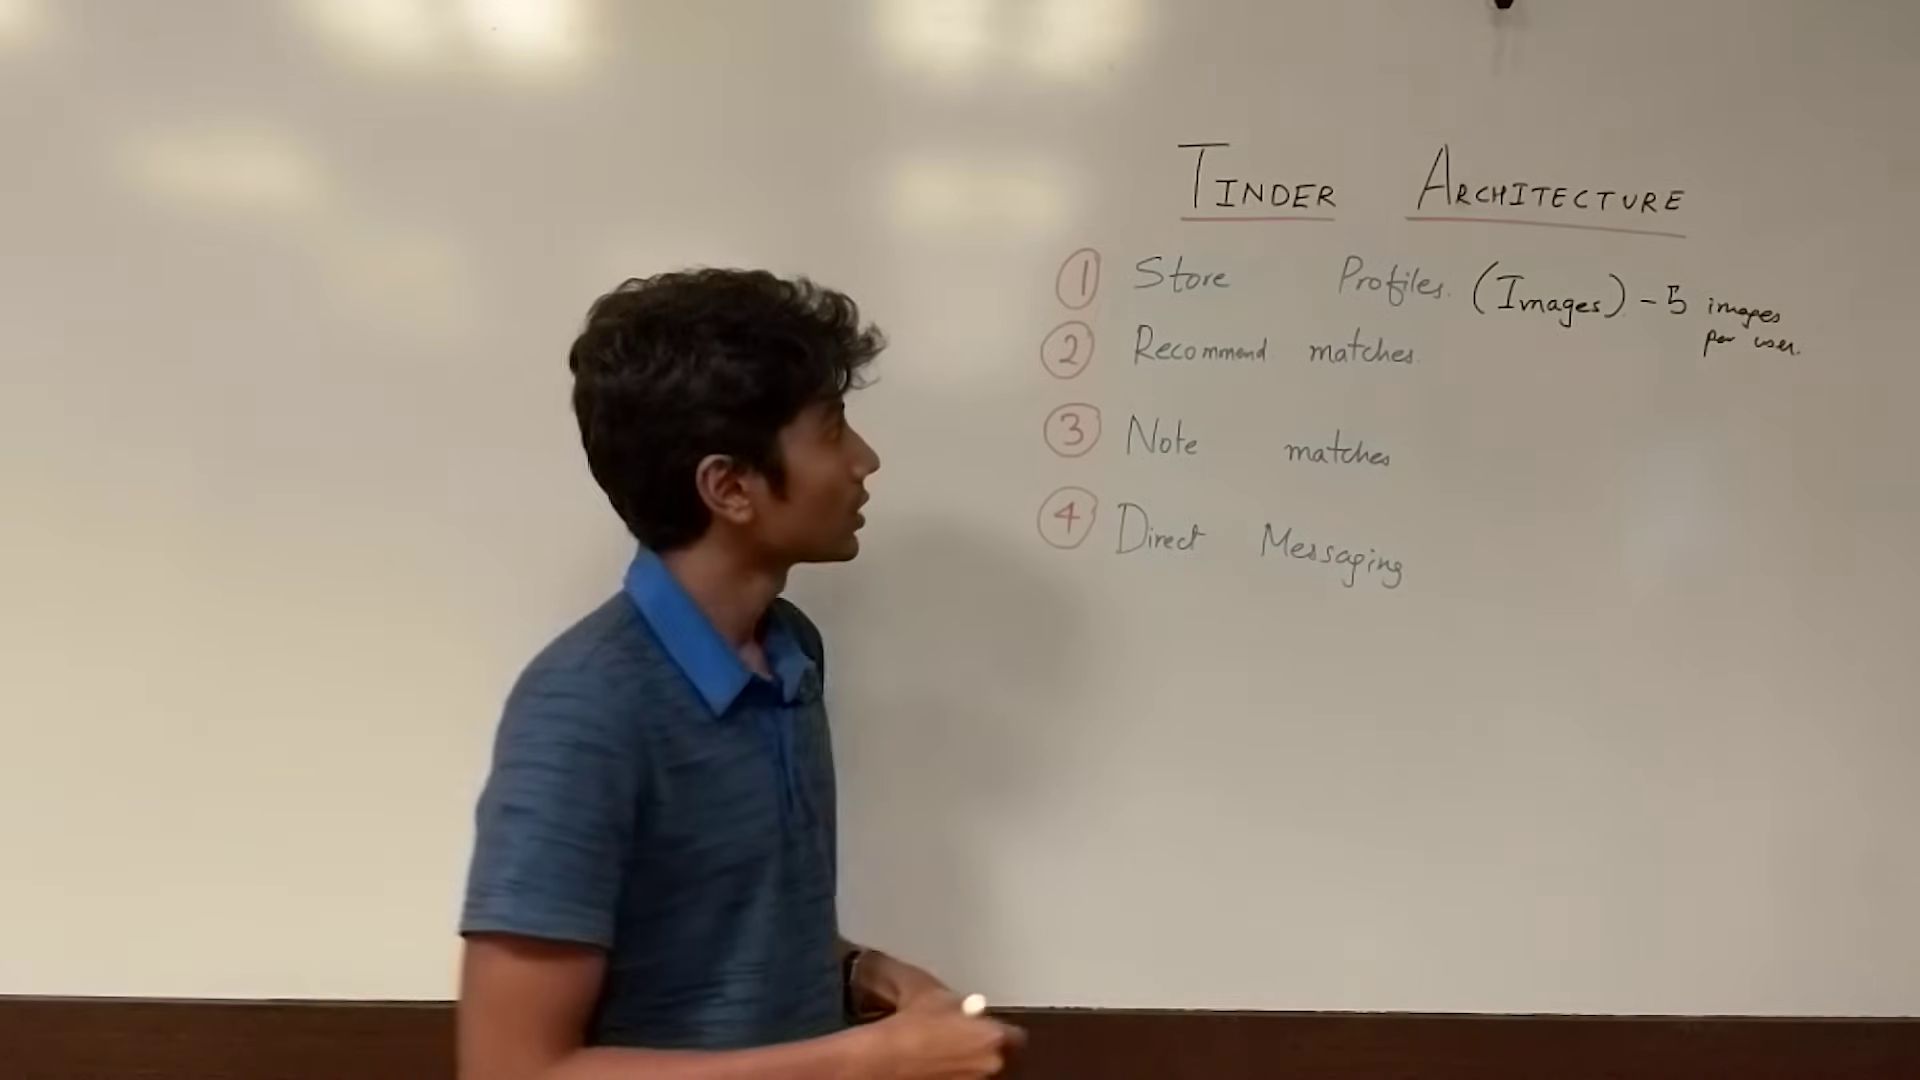 TINDER ARCHITECTURE
1 Store Profiles. (Images) - 5 images
per user.
2 Recommend matches.
3 Note matches
4 Direct Messaging